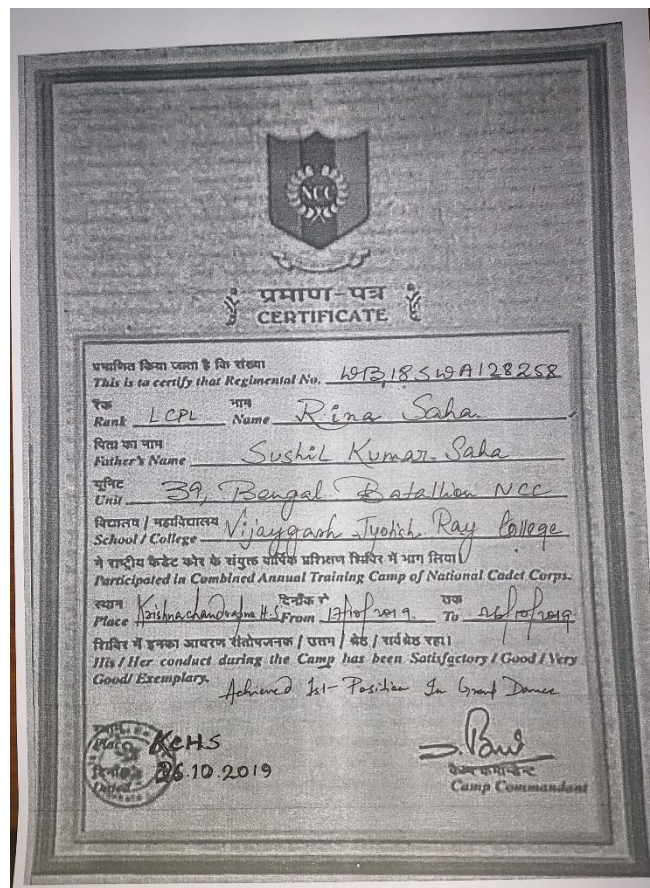 NCC
प्रमाण-पत्र
CERTIFICATE
प्रमाणित किया जाता है कि संख्या
This is to certify that Regimental No. WB18SWA128258
रैंक नाम
Rank LCPL Name Rina Saha
पिता का नाम
Father's Name Sushil Kumar Saha
यूनिट
Unit 39, Bengal Batallion NCC
विद्यालय / महाविद्यालय
School / College Vijaygarh Jyotish Ray College
ने राष्ट्रीय कैडेट कोर के संयुक्त वार्षिक प्रशिक्षण शिविर में भाग लिया।
Participated in Combined Annual Training Camp of National Cadet Corps.
स्थान दिनाँक से तक
Place H.S From 17/10/2019 To 26/10/2019
शिविर में इनका आचरण संतोषजनक / उत्तम / श्रेष्ठ / सर्वश्रेष्ठ रहा।
His / Her conduct during the Camp has been Satisfactory / Good / Very
Good / Exemplary.
Achieved 1st - Position In Group Dance
Place KCHS
दिनाँक 26.10.2019
Dated
कैम्प कमान्डेन्ट
Camp Commandant